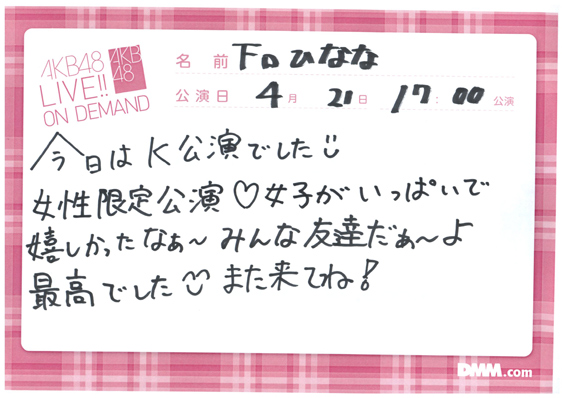 AKB48
LIVE!!
ON DEMAND
AKB
48
名 前 下口ひなな
公演日 4月 21日 17:00 公演
今日はK公演でした
女性限定公演♡女子がいっぱいで
嬉しかったなぁ〜みんな友達だぁ〜よ
最高でした また来てね!
DMM.com